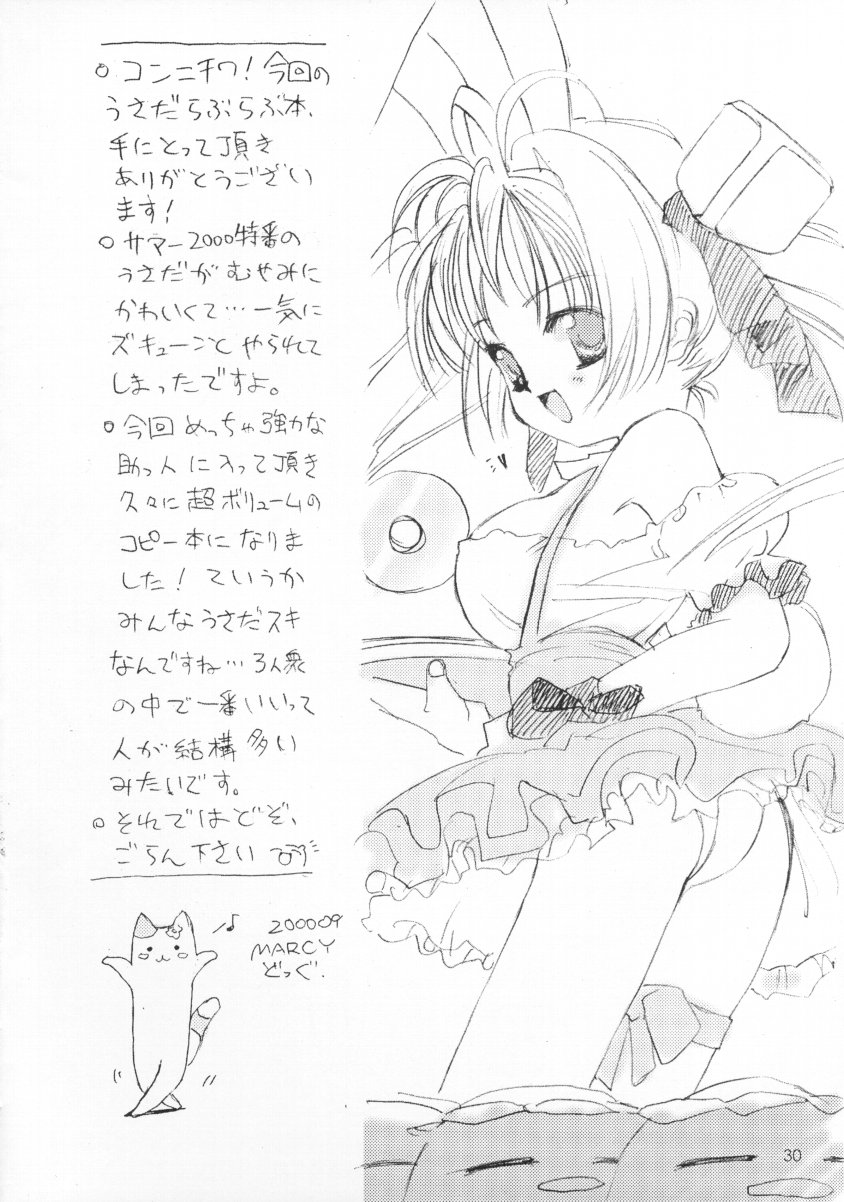 ○ コンニチワ！今回の
うさだらぶらぶ本、
手にとって頂き
ありがとうござい
ます！
○ サマー2000特番の
うさだがむやみに
かわいくて…一気に
ズキューンとやられて
しまったですよ。
○ 今回めっちゃ強力な
助っ人に入って頂き
久々に超ボリュームの
コピー本になりま
した！ていうか
みんなうさだスキ
なんですね…3人衆
の中で一番いいって
人が結構多い
みたいです。
○ それではどぞ、
ごらん下さい
♪ 200009
MARCY
どっぐ.
30